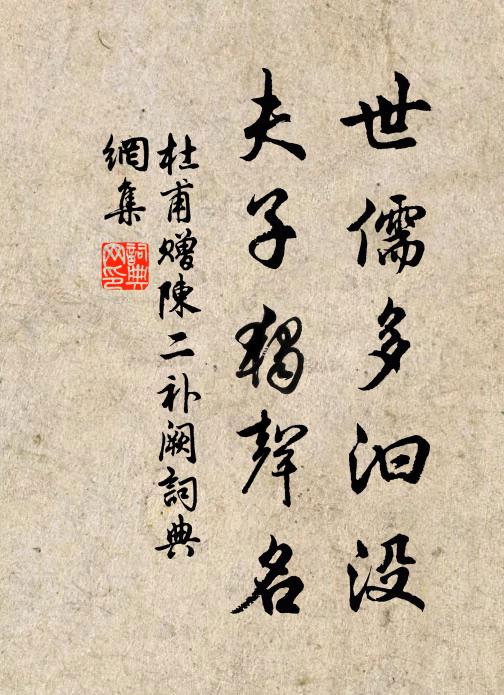 世儒多汩没
夫子獨聲名
杜甫贈陳二补阙詞典
網集
詞典
网印